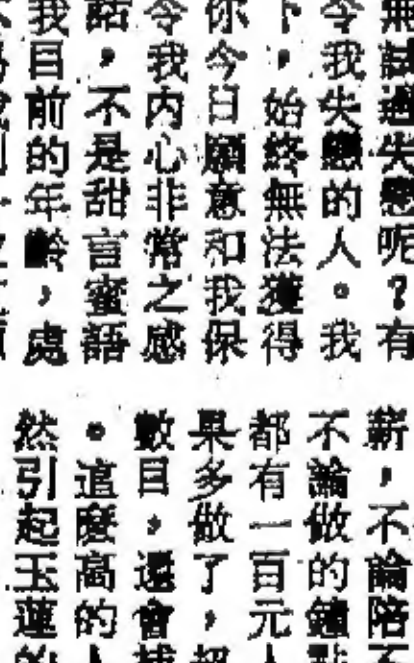 無試過失戀呢？有
令我失戀的人。我
下，始終無法獲得
你今日願意和我保
令我內心非常之感
話，不是甜言蜜語
我目前的年齡，處
薪，不論陪不
不論做的鐘點
都有一百元
果多做了，超
數目，還會補
。這麼高的人
然引起玉蓮的